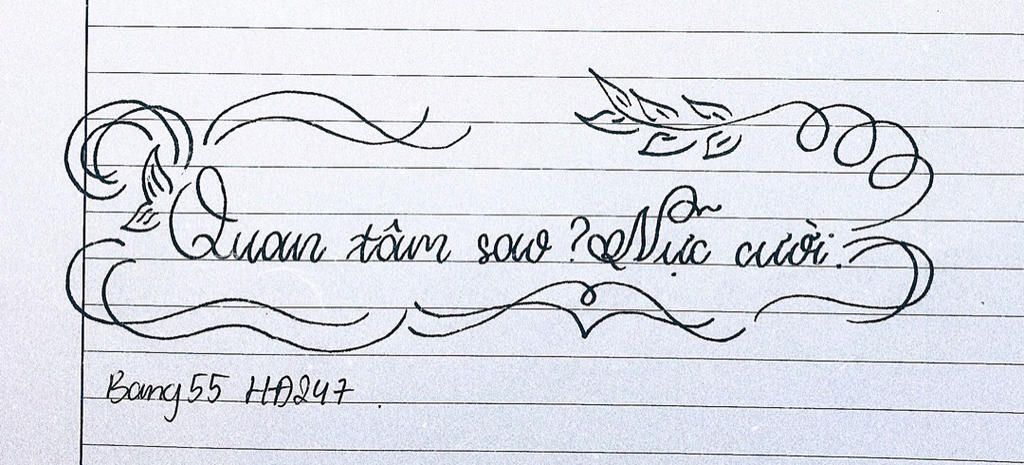 Quan tâm sao ? Nực cười.
Bang55 HĐ247